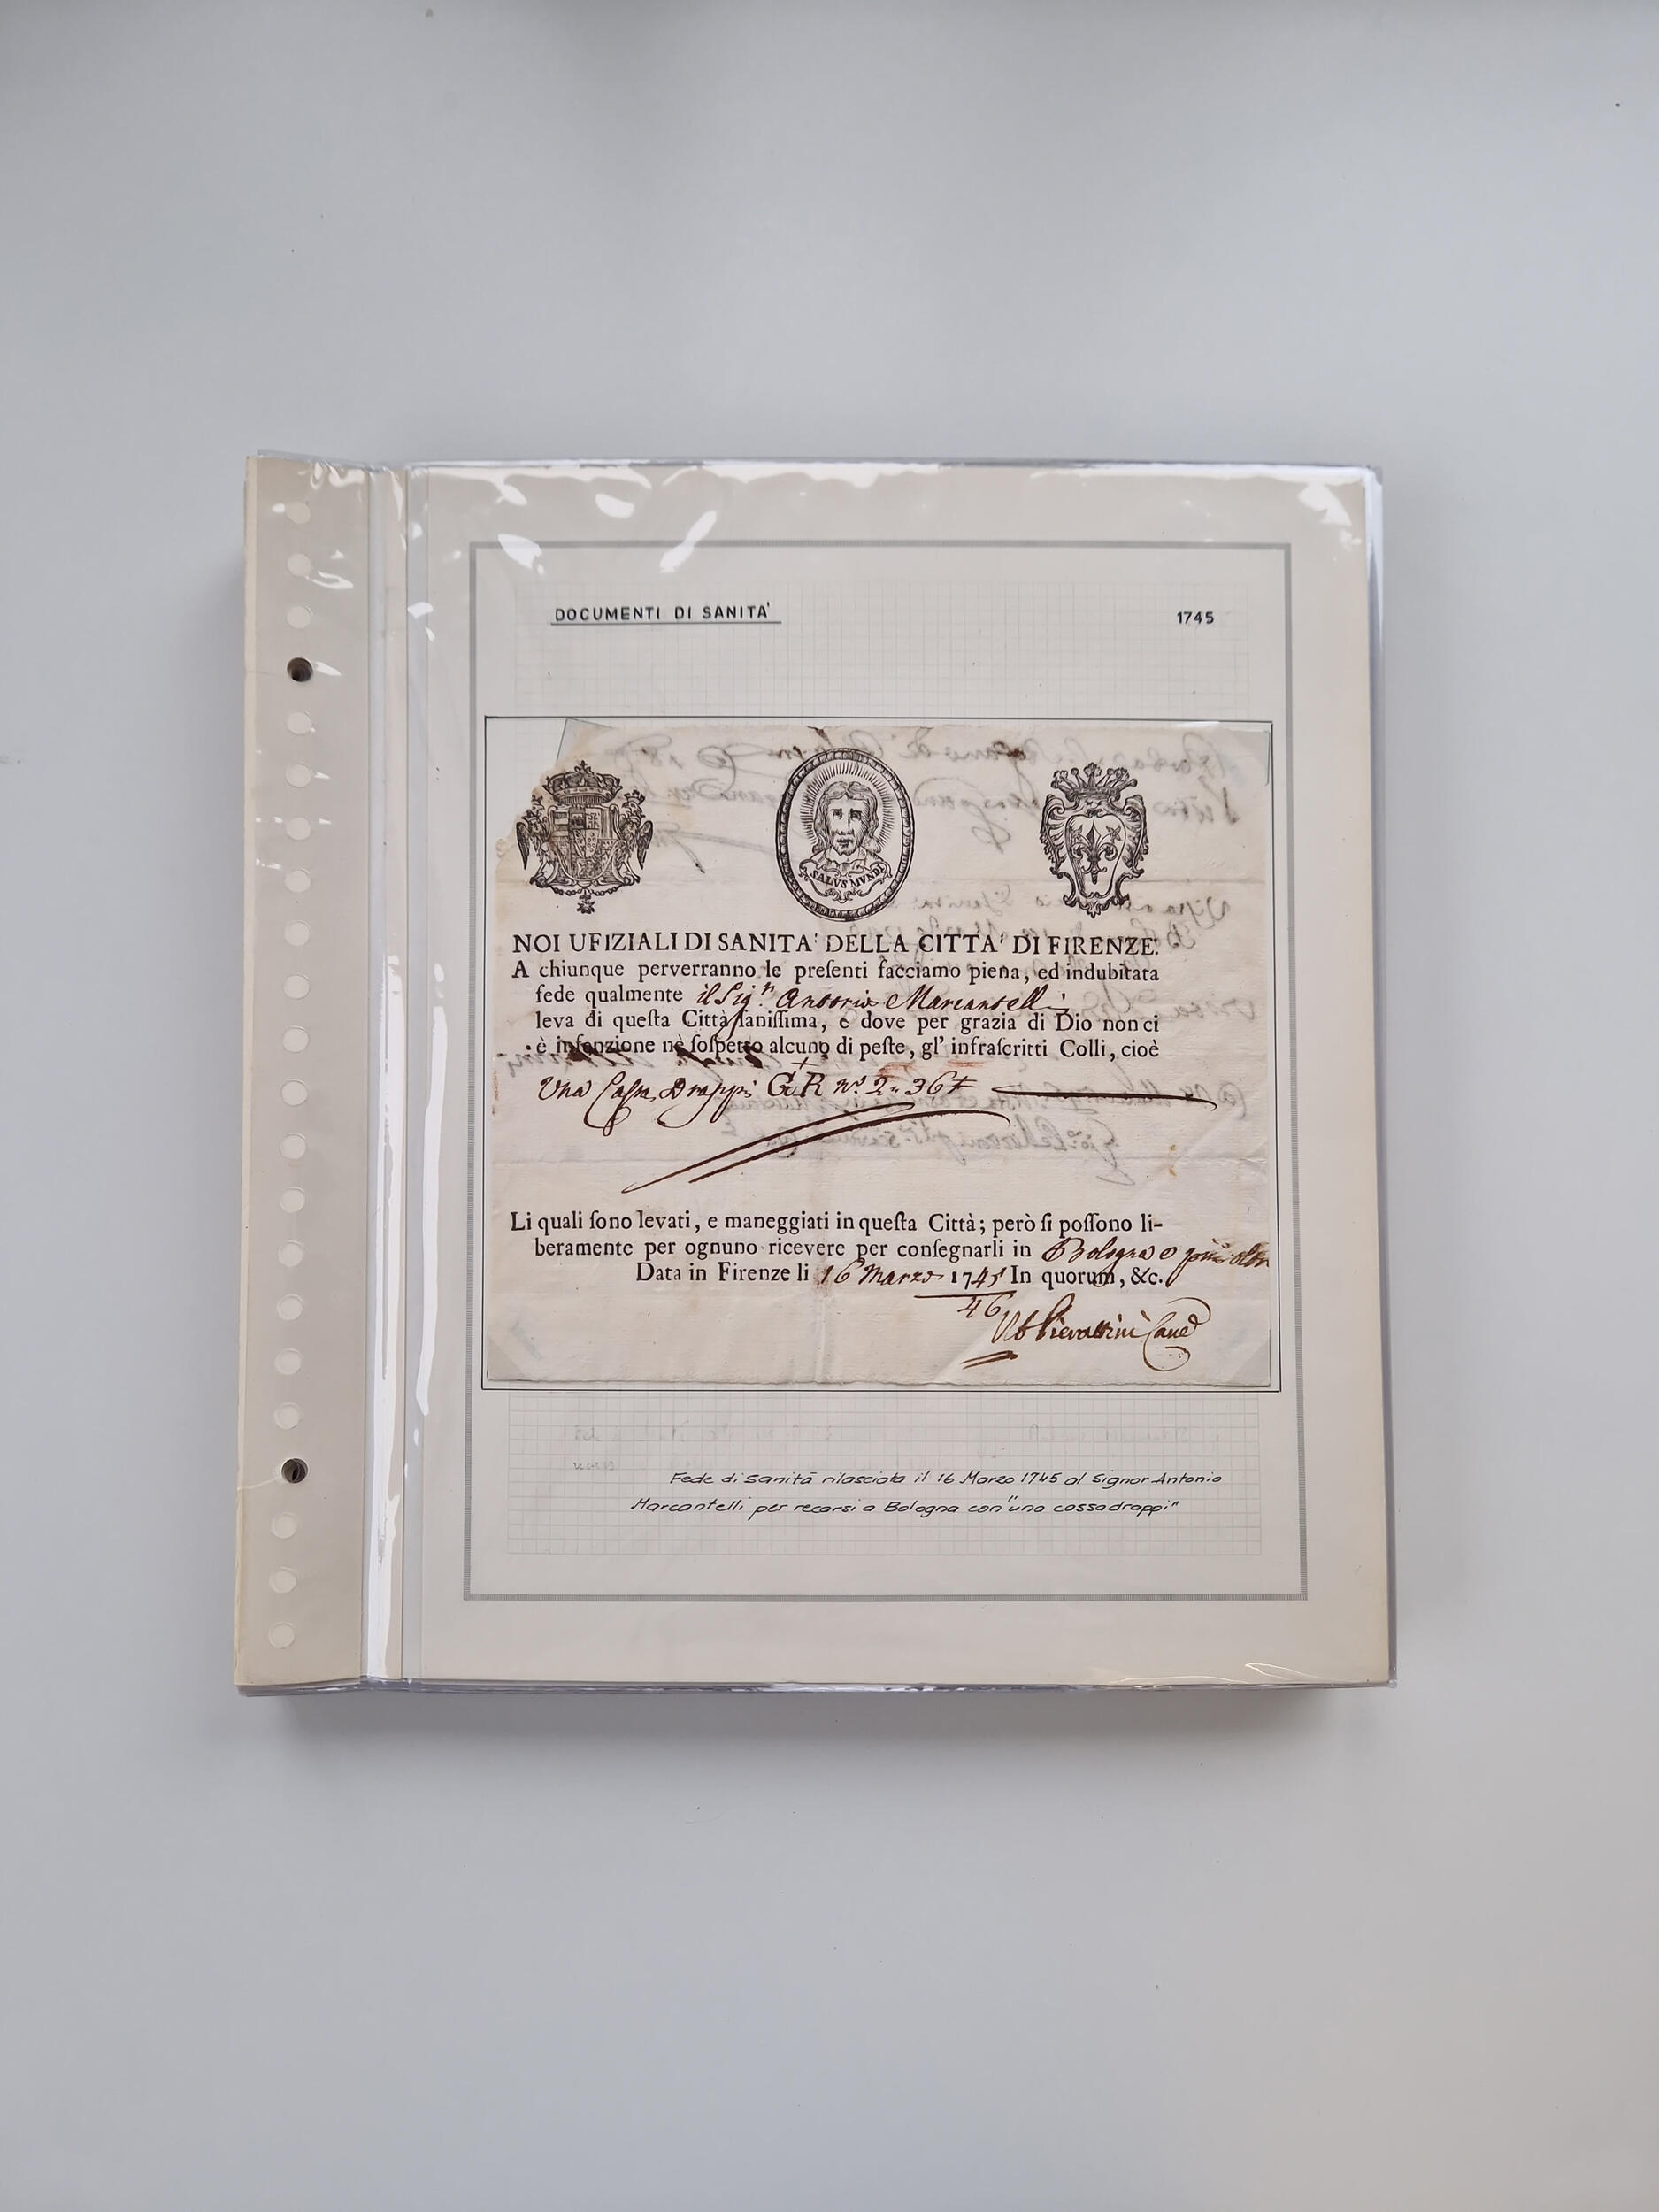 DOCUMENTI DI SANITA'
1745
SALVS MVNDI
NOI UFIZIALI DI SANITA' DELLA CITTA' DI FIRENZE.
A chiunque perverranno le preſenti facciamo piena, ed indubitata
fede qualmente il Sig.r Antonio Marcantelli
leva di queſta Città ſaniſſima, e dove per grazia di Dio non ci
è infezione nè ſoſpetto alcuno di peſte, gl' infraſcritti Colli, cioè
Una Caſsa Drappi G R n.o 2. 36
Li quali ſono levati, e maneggiati in queſta Città; però ſi poſſono li-
beramente per ognuno ricevere per conſegnarli in Bologna e
Data in Firenze li 16 Marzo 1745 In quorum, &c.
46
Canc
Fede di Sanità rilasciata il 16 Marzo 1745 al Signor Antonio
Marcantelli per recarsi a Bologna con "una cassa drappi"